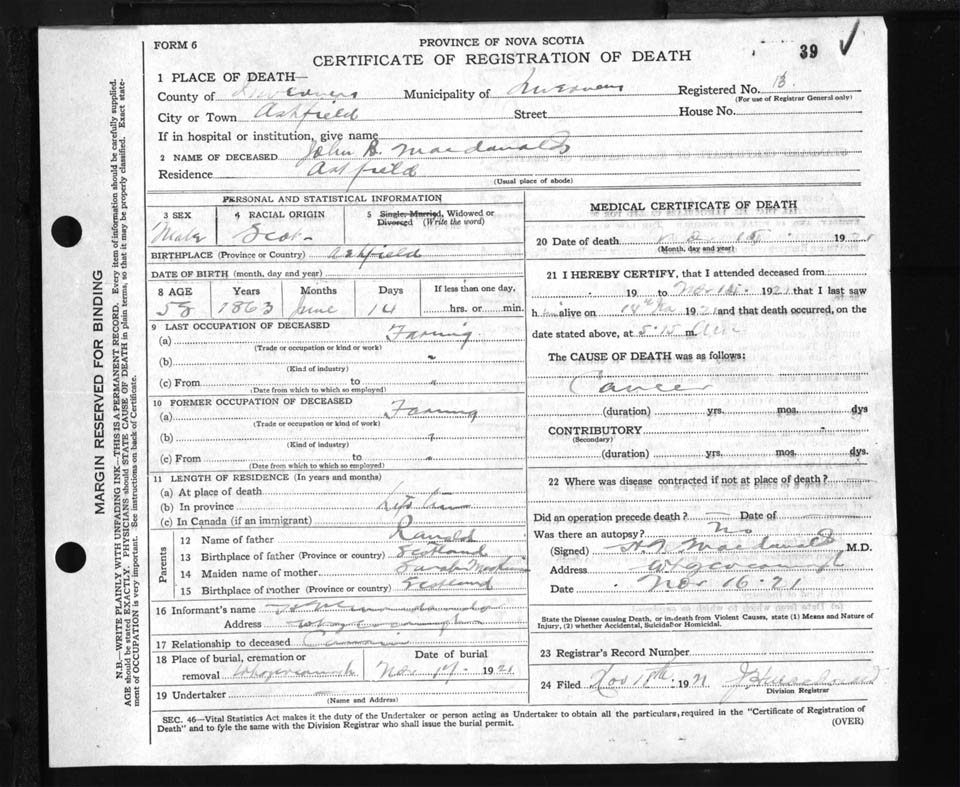 FORM 6
PROVINCE OF NOVA SCOTIA
39 ✓
CERTIFICATE OF REGISTRATION OF DEATH
1 PLACE OF DEATH—
County of Inverness Municipality of Inverness Registered No. 13.
(For use of Registrar General only)
City or Town Ashfield Street House No.
If in hospital or institution, give name
2 NAME OF DECEASED John B. Macdonald
Residence Ashfield
(Usual place of abode)
PERSONAL AND STATISTICAL INFORMATION
3 SEX 4 RACIAL ORIGIN 5 Single, Married, Widowed or Divorced (Write the word)
Male Scot
BIRTHPLACE (Province or Country) Ashfield
DATE OF BIRTH (month, day and year)
8 AGE Years Months Days If less than one day,
58 1863 June 14 hrs. or min.
9 LAST OCCUPATION OF DECEASED
(a) Farming
(Trade or occupation or kind or work)
(b) "
(Kind of industry)
(c) From to "
(Date from which to which so employed)
10 FORMER OCCUPATION OF DECEASED
(a) Farming
(Trade or occupation or kind of work)
(b) "
(Kind of industry)
(c) From to "
(Date from which to which so employed)
11 LENGTH OF RESIDENCE (In years and months)
(a) At place of death
(b) In province Life time
(c) In Canada (if an immigrant)
Parents
12 Name of father Ranald
13 Birthplace of father (Province or country) Scotland
14 Maiden name of mother Sarah
15 Birthplace of mother (Province or country) Scotland
16 Informant's name
Address Whycocomagh
17 Relationship to deceased
18 Place of burial, cremation or Date of burial
removal Whycocomagh Nov 17 1921
19 Undertaker —
(Name and Address)
MEDICAL CERTIFICATE OF DEATH
20 Date of death 15 1921
(Month, day and year)
21 I HEREBY CERTIFY, that I attended deceased from
19 to Nov 15 1921 that I last saw
him alive on 14th Nov 1921 and that death occurred, on the
date stated above, at 5.15 m. AM
The CAUSE OF DEATH was as follows:
Cancer
(duration) yrs. mos. dys
CONTRIBUTORY
(Secondary)
(duration) yrs. mos. dys.
22 Where was disease contracted if not at place of death?
Did an operation precede death? — Date of —
Was there an autopsy? No
(Signed) H. N. Macdonald M.D.
Address Whycocomagh
Date Nov 16 · 21
State the Disease causing Death, or in death from Violent Causes, state (1) Means and Nature of
Injury, (2) whether Accidental, Suicidal or Homicidal.
23 Registrar's Record Number
24 Filed Nov 18th 1921
Division Registrar
SEC. 46—Vital Statistics Act makes it the duty of the Undertaker or person acting as Undertaker to obtain all the particulars, required in the "Certificate of Registration of
Death" and to fyle the same with the Division Registrar who shall issue the burial permit.
(OVER)
MARGIN RESERVED FOR BINDING
N.B.—WRITE PLAINLY WITH UNFADING INK—THIS IS A PERMANENT RECORD. Every item of information should be carefully supplied.
AGE should be stated EXACTLY. PHYSICIANS should STATE CAUSE OF DEATH in plain terms, so that it may be properly classified. Exact state-
ment of OCCUPATION is very important. See instructions on back of Certificate.